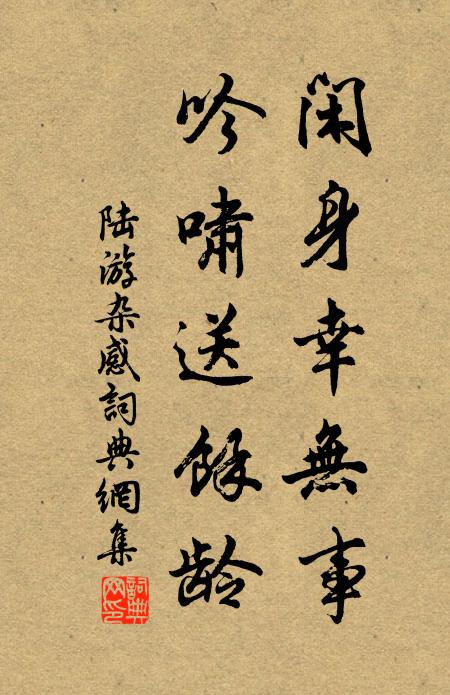 闲身幸無事
吟嘯送餘龄
陆游杂感詞典網集
詞典网印